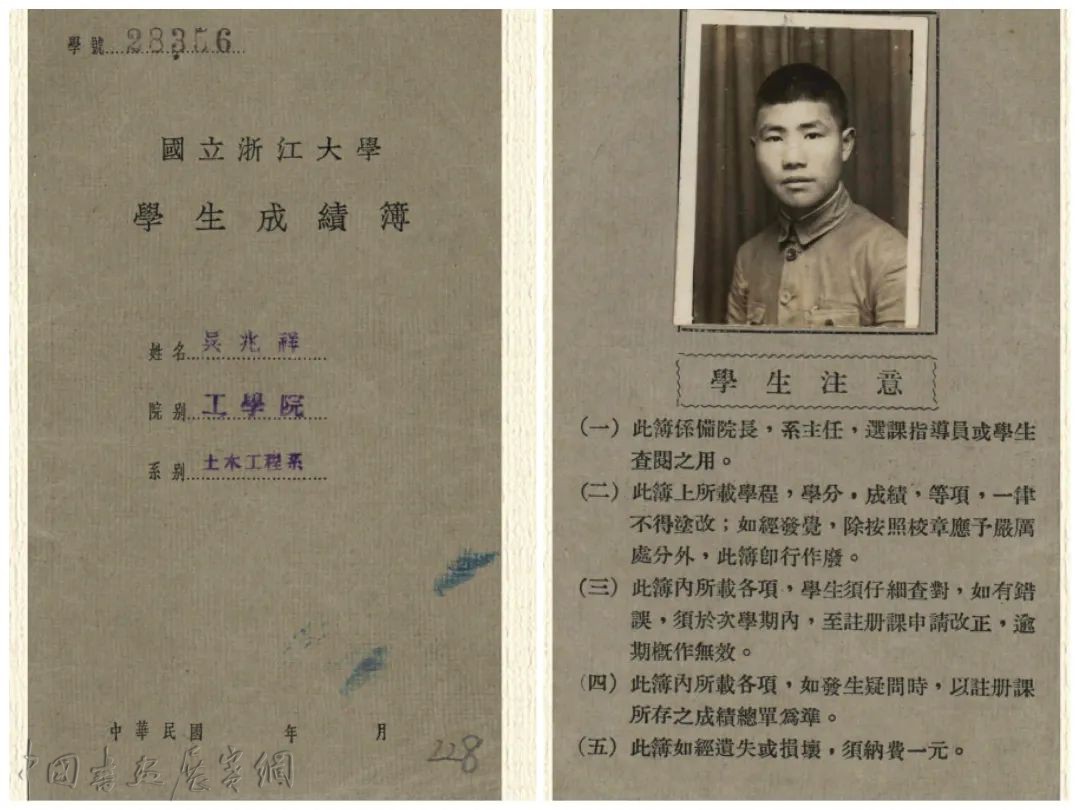 學號 28356
國立浙江大學
學生成績簿
姓名 吳兆祥
院別 工學院
系別 土木工程系
中華民國 年 月
228
中國書畫展賽網
學生注意
(一) 此簿係備院長，系主任，選課指導員或學生
查閱之用。
(二) 此簿上所載學程，學分，成績，等項，一律
不得塗改；如經發覺，除按照校章應予嚴厲
處分外，此簿卽行作廢。
(三) 此簿內所載各項，學生須仔細查對，如有錯
誤，須於次學期內，至註册課申請改正，逾
期概作無效。
(四) 此簿內所載各項，如發生疑問時，以註册課
所存之成績總單爲準。
(五) 此簿如經遺失或損壞，須納費一元。